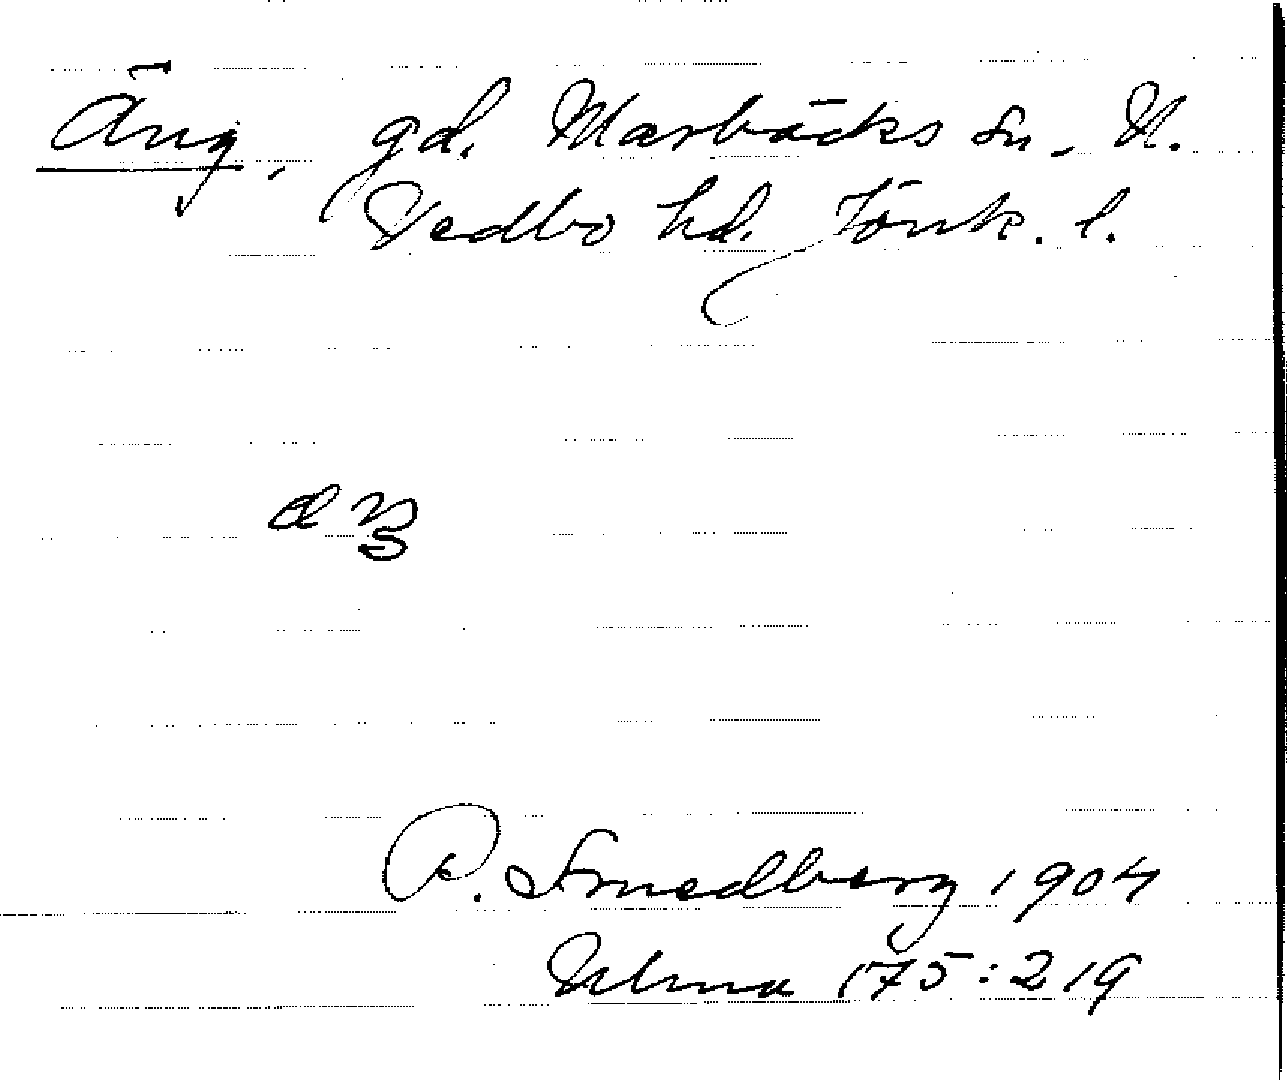 Äng, gd. Marbäcks sn, N.
Vedbo hd. Jönk. l.
A. Smedberg 1904
Ulma 175:219